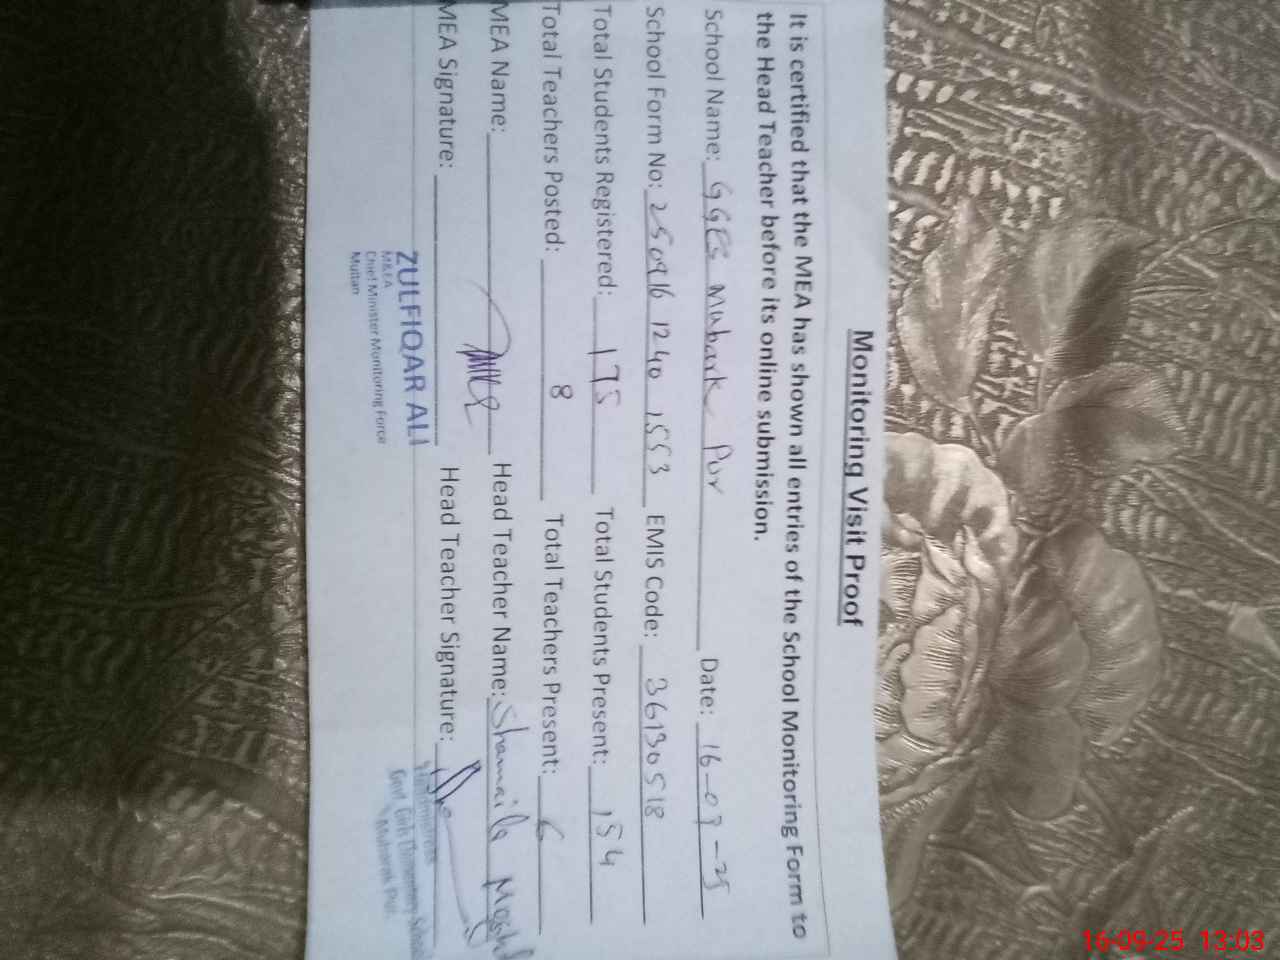 Monitoring Visit Proof
It is certified that the MEA has shown all entries of the School Monitoring Form to
the Head Teacher before its online submission.
School Name: GGES Mubark Pur Date: 16-09-25
School Form No: 250916 1240 1553 EMIS Code: 36130518
Total Students Registered: 175 Total Students Present: 154
Total Teachers Posted: 8 Total Teachers Present: 6
MEA Name: Head Teacher Name: Shamaila
MEA Signature: Head Teacher Signature:
ZULFIQAR ALI
M&EA
Chief Minister Monitoring Force
Multan
Headmistress
Govt. Girls Elementary School
Mubarak Pur
16-09-25 13:03